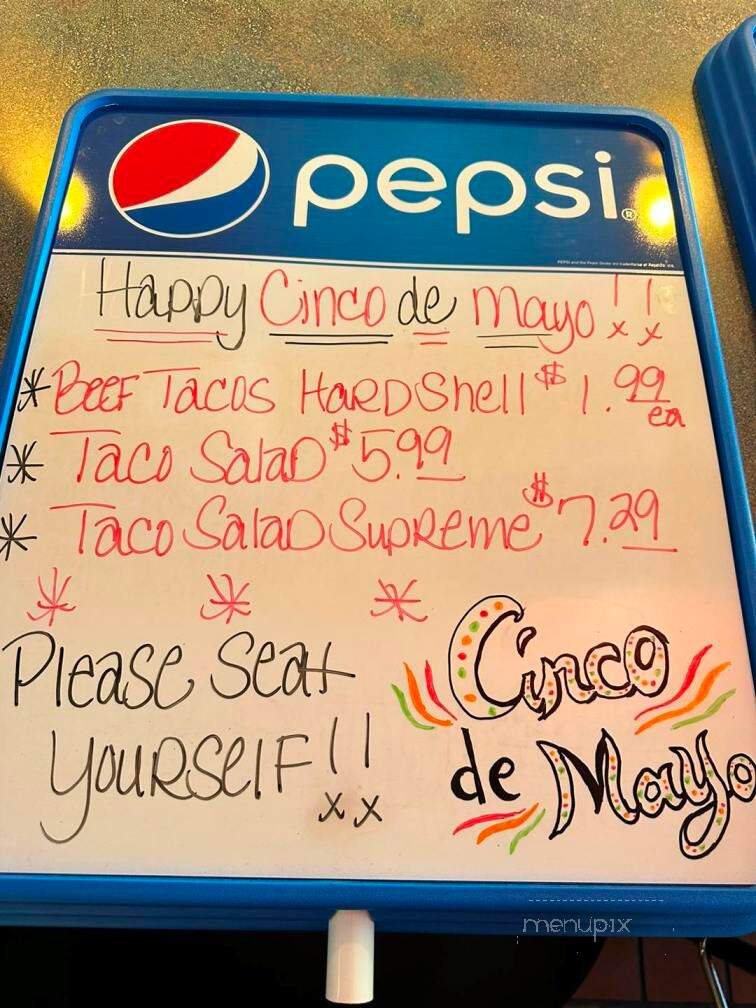 pepsi®
Happy Cinco de Mayo!!
* Beef Tacos Hard Shell $1.99 ea
* Taco Salad $5.99
* Taco Salad Supreme $7.29
* * *
Please Seat
Yourself!!
Cinco
de Mayo
menupix